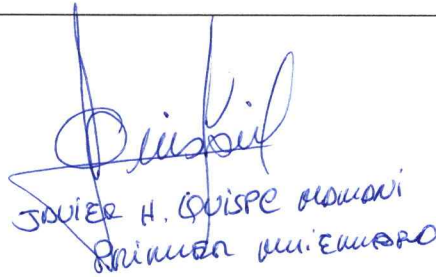 JAVIER H. QUISPE MAMANI
PRIMER MIEMBRO